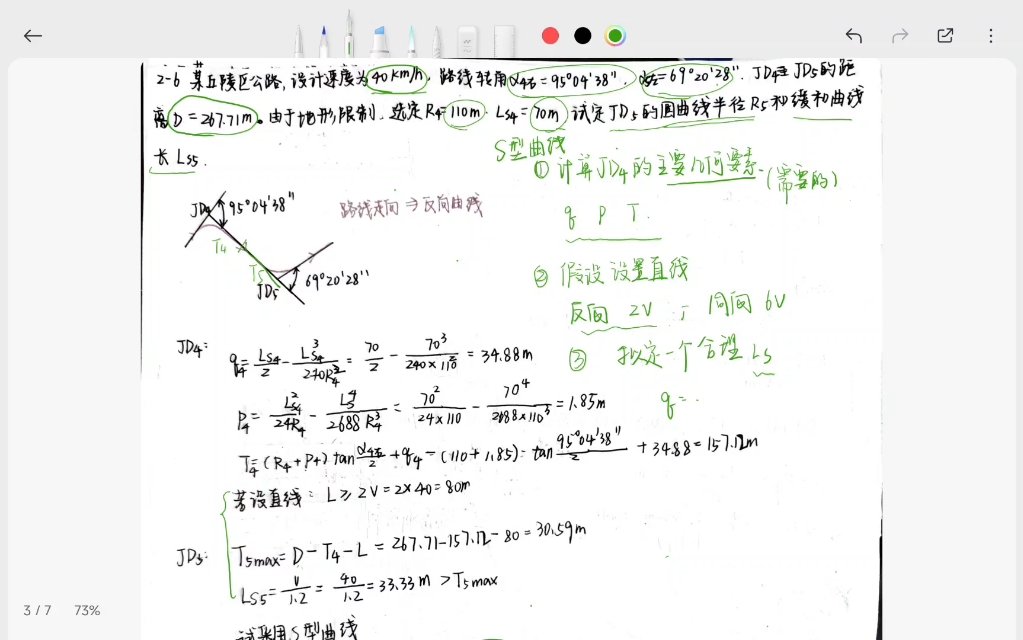 2-6 某丘陵区公路,设计速度为40km/h,路线转角α4左=95°04'38",α5右=69°20'28".JD4至JD5的距
离D=267.71m。由于地形限制,选定R4=110m.LS4=70m 试定JD5的圆曲线半径R5和缓和曲线
长LS5.
S型曲线
① 计算JD4的主要几何要素.(需要的)
q P T.
② 假设设置直线
反向 2V ; 同向 6V
③ 拟定一个合理 LS
q=..
JD4 95°04'38"
路线走向⇒反向曲线
T4
T5
JD5 69°20'28"
JD4:
q4=LS4/2-LS4³/240R4²=70/2-70³/(240×110²)=34.88m
P4=LS4²/24R4-LS4⁴/2688R4³=70²/(24×110)-70⁴/(2688×110³)=1.85m
T4=(R4+P4)tan α4左/2+q4=(110+1.85)·tan 95°04'38"/2+34.88=157.12m
JD5:
若设直线: L≥2V=2×40=80m
T5max=D-T4-L=267.71-157.12-80=30.59m
LS5=V/1.2=40/1.2=33.33m>T5max
试采用S型曲线
3 / 7 73%